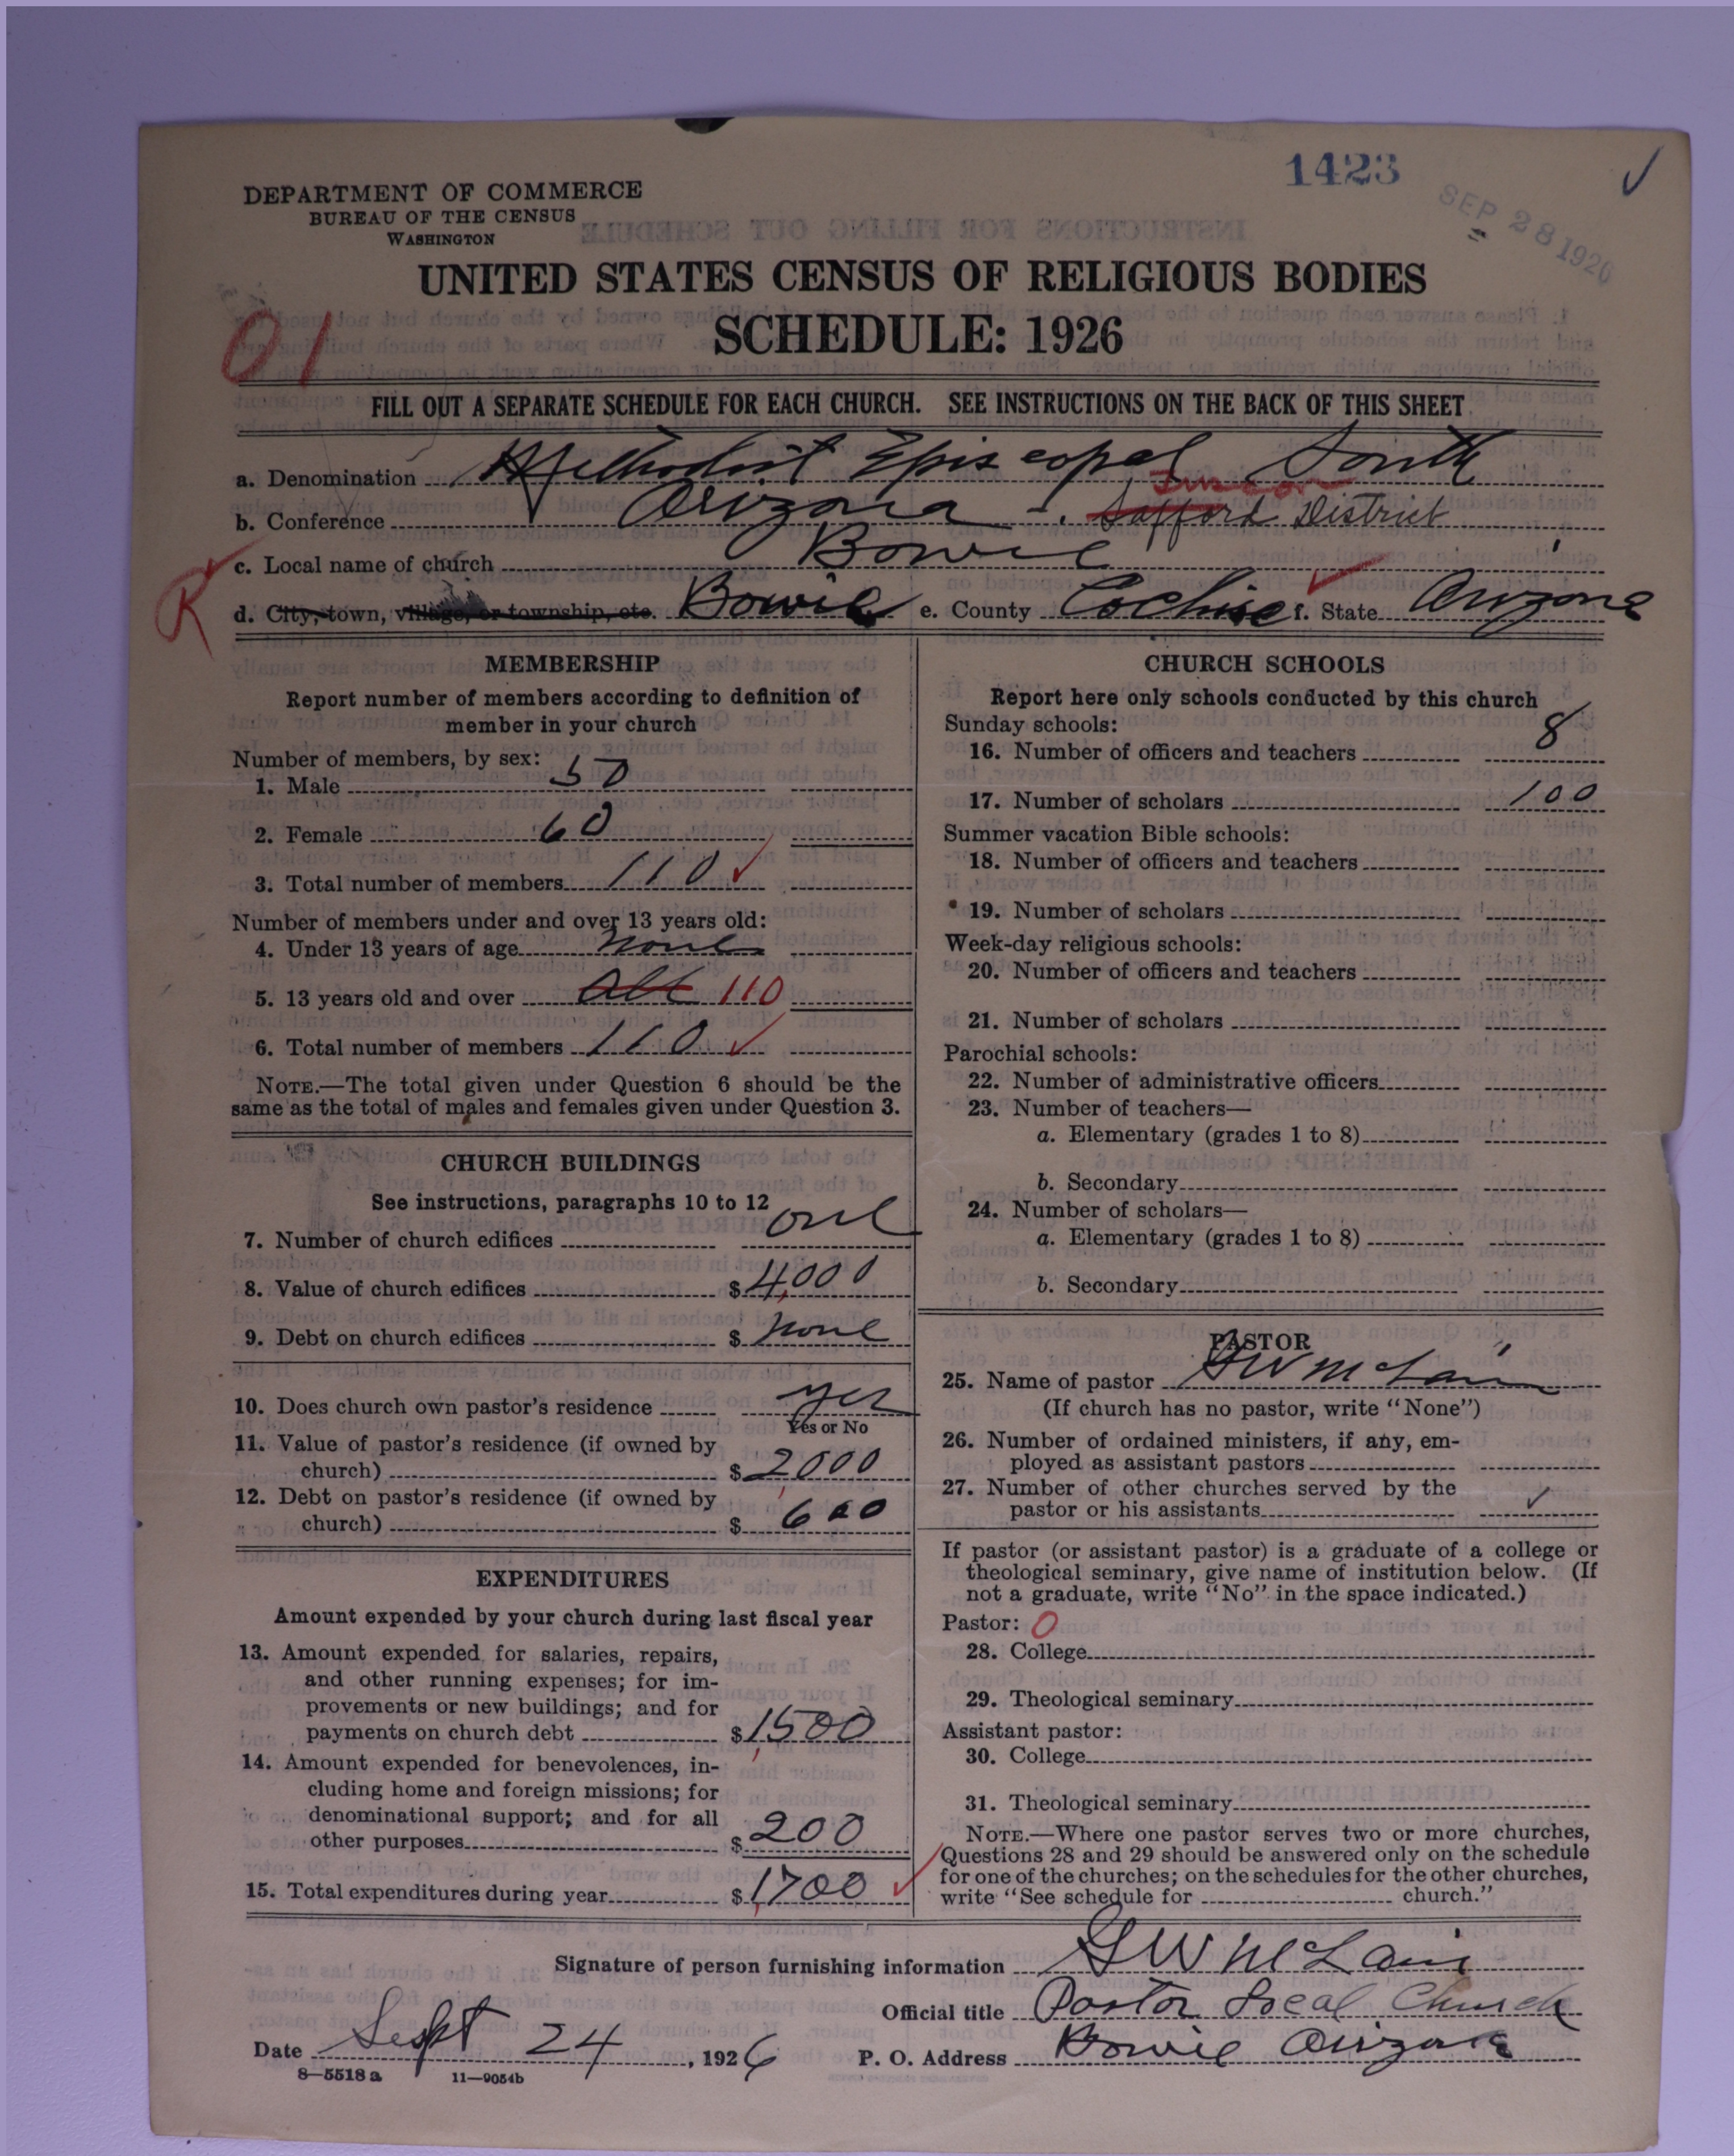 1423
SEP 28 1926
DEPARTMENT OF COMMERCE
BUREAU OF THE CENSUS
WASHINGTON
UNITED STATES CENSUS OF RELIGIOUS BODIES
SCHEDULE: 1926
01
FILL OUT A SEPARATE SCHEDULE FOR EACH CHURCH. SEE INSTRUCTIONS ON THE BACK OF THIS SHEET
a. Denomination Methodist Episcopal South
Tucson
b. Conference Arizona - Safford District
c. Local name of church Bowie
R
d. City, town, village, or township, etc. Bowie e. County Cochise f. State Arizona
MEMBERSHIP
Report number of members according to definition of
member in your church
Number of members, by sex:
1. Male 50
2. Female 60
3. Total number of members 110
Number of members under and over 13 years old:
4. Under 13 years of age none
5. 13 years old and over all 110
6. Total number of members 110
NOTE.—The total given under Question 6 should be the
same as the total of males and females given under Question 3.
CHURCH BUILDINGS
See instructions, paragraphs 10 to 12
7. Number of church edifices one
8. Value of church edifices $ 4,000
9. Debt on church edifices $ none
10. Does church own pastor's residence yes
Yes or No
11. Value of pastor's residence (if owned by
church) $ 2,000
12. Debt on pastor's residence (if owned by
church) $ 600
EXPENDITURES
Amount expended by your church during last fiscal year
13. Amount expended for salaries, repairs,
and other running expenses; for im-
provements or new buildings; and for
payments on church debt $ 1,500
14. Amount expended for benevolences, in-
cluding home and foreign missions; for
denominational support; and for all
other purposes $ 200
15. Total expenditures during year $ 1,700
CHURCH SCHOOLS
Report here only schools conducted by this church
Sunday schools:
16. Number of officers and teachers 8
17. Number of scholars 100
Summer vacation Bible schools:
18. Number of officers and teachers
19. Number of scholars
Week-day religious schools:
20. Number of officers and teachers
21. Number of scholars
Parochial schools:
22. Number of administrative officers
23. Number of teachers—
a. Elementary (grades 1 to 8)
b. Secondary
24. Number of scholars—
a. Elementary (grades 1 to 8)
b. Secondary
PASTOR
25. Name of pastor G W McLain
(If church has no pastor, write "None")
26. Number of ordained ministers, if any, em-
ployed as assistant pastors
27. Number of other churches served by the
pastor or his assistants
If pastor (or assistant pastor) is a graduate of a college or
theological seminary, give name of institution below. (If
not a graduate, write "No" in the space indicated.)
Pastor: 0
28. College
29. Theological seminary
Assistant pastor:
30. College
31. Theological seminary
NOTE.—Where one pastor serves two or more churches,
Questions 28 and 29 should be answered only on the schedule
for one of the churches; on the schedules for the other churches,
write "See schedule for church."
Signature of person furnishing information G W McLain
Official title Pastor Local Church
Date Sept 24, 1926 P. O. Address Bowie Arizona
8—5518 a 11—9054b